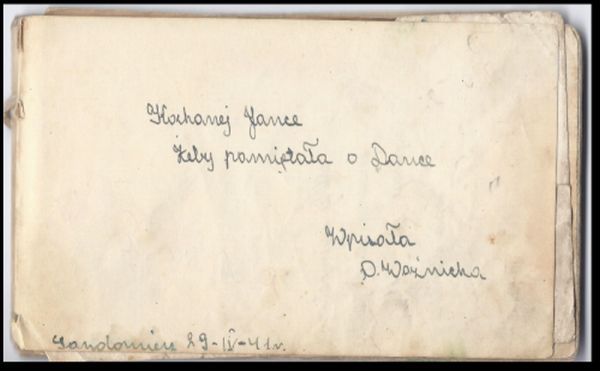 Kochanej Jance
Żeby pamiętała o Dance
Wpisała
D. Woźnicka
Sandomierz 29-IV-41r.